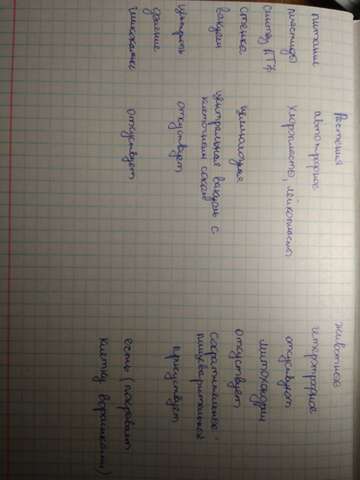 Растения животное
питание автотрофное гетеротрофное
пластиды хлоропласты, лейкопласты отсутствуют
синтез АТФ митохондрии
стенка целлюлозная отсутствует
вакуоли центральная вакуоль с клеточным соком сократительные пищеварительные
центриоли отсутствует присутствует
деление
гликокаликс отсутствует есть (покрывает клетку ворсинками)